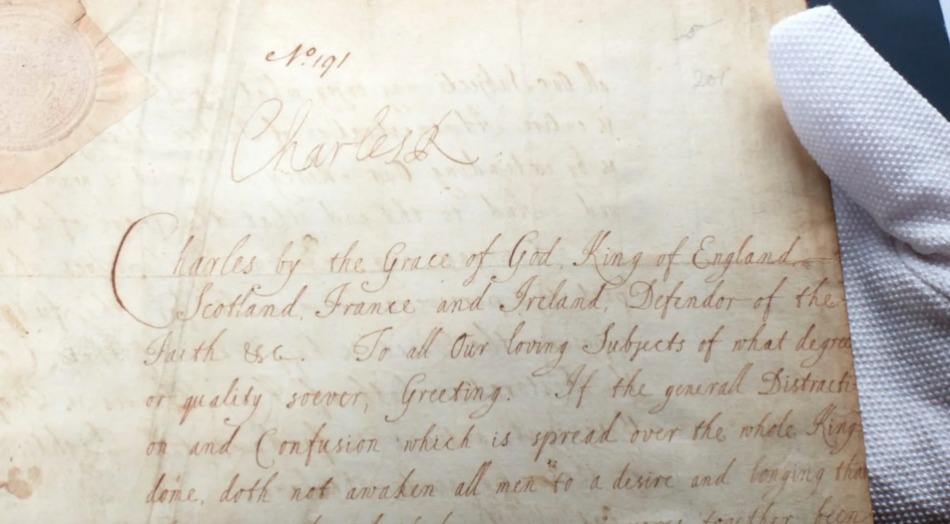 No. 191
201
Charles R
Charles by the Grace of God, King of England
Scotland, France and Ireland, Defendor of the
Faith &c. To all Our loving Subjects of what degree
or quality soever, Greeting. If the generall Distracti
on and Confusion which is spread over the whole King
dome, doth not awaken all men to a desire and longing that
together been